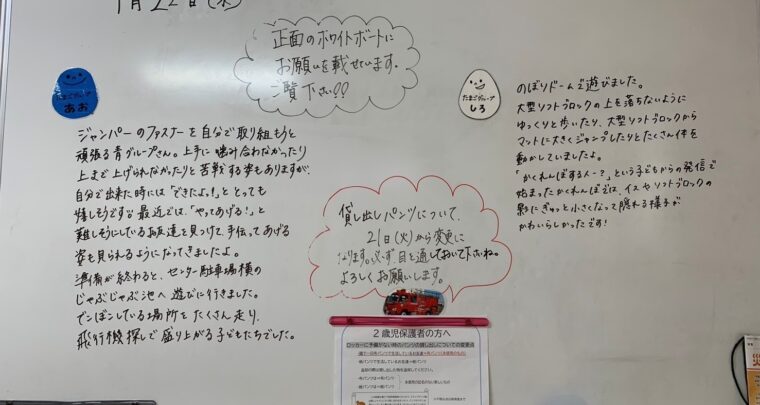 1月22日(水)
正面のホワイトボードに
お願いを載せています。
ご覧下さい??
たまごグループ
あお
ジャンパーのファスナーを自分で取り組もうと
頑張る青グループさん。上手に噛み合わなかったり
上まで上げられなかったりと苦戦する姿もありますが、
自分で出来た時には「できたよ!」ととっても
嬉しそうです♡最近では、「やってあげる!」と
難しそうにしているお友達を見つけて、手伝ってあげる
姿も見られるようになってきましたよ。
準備が終わると、センター駐車場横の
じゃぶじゃぶ池へ遊びに行きました。
でこぼこしている場所をたくさん走り、
飛行機探しで盛り上がる子どもたちでした。
貸し出しパンツについて、
21日(火)から変更に
なります。必ず目を通しておいて下さいね。
よろしくお願いします。
たまごグループ
しろ
のぼりドームで遊びました。
大型ソフトブロックの上を落ちないように
ゆっくりと歩いたり、大型ソフトブロックから
マットに大きくジャンプしたりとたくさん体を
動かしていましたよ。
「かくれんぼするスー?」という子どもからの発信で
始まったかくれんぼでは、イスやソフトブロックの
影にぎゅっと小さくなって隠れる様子が
かわいらしかったです!
2歳児保護者の方へ
ロッカーに予備がない時のパンツの貸し出しについての変更点